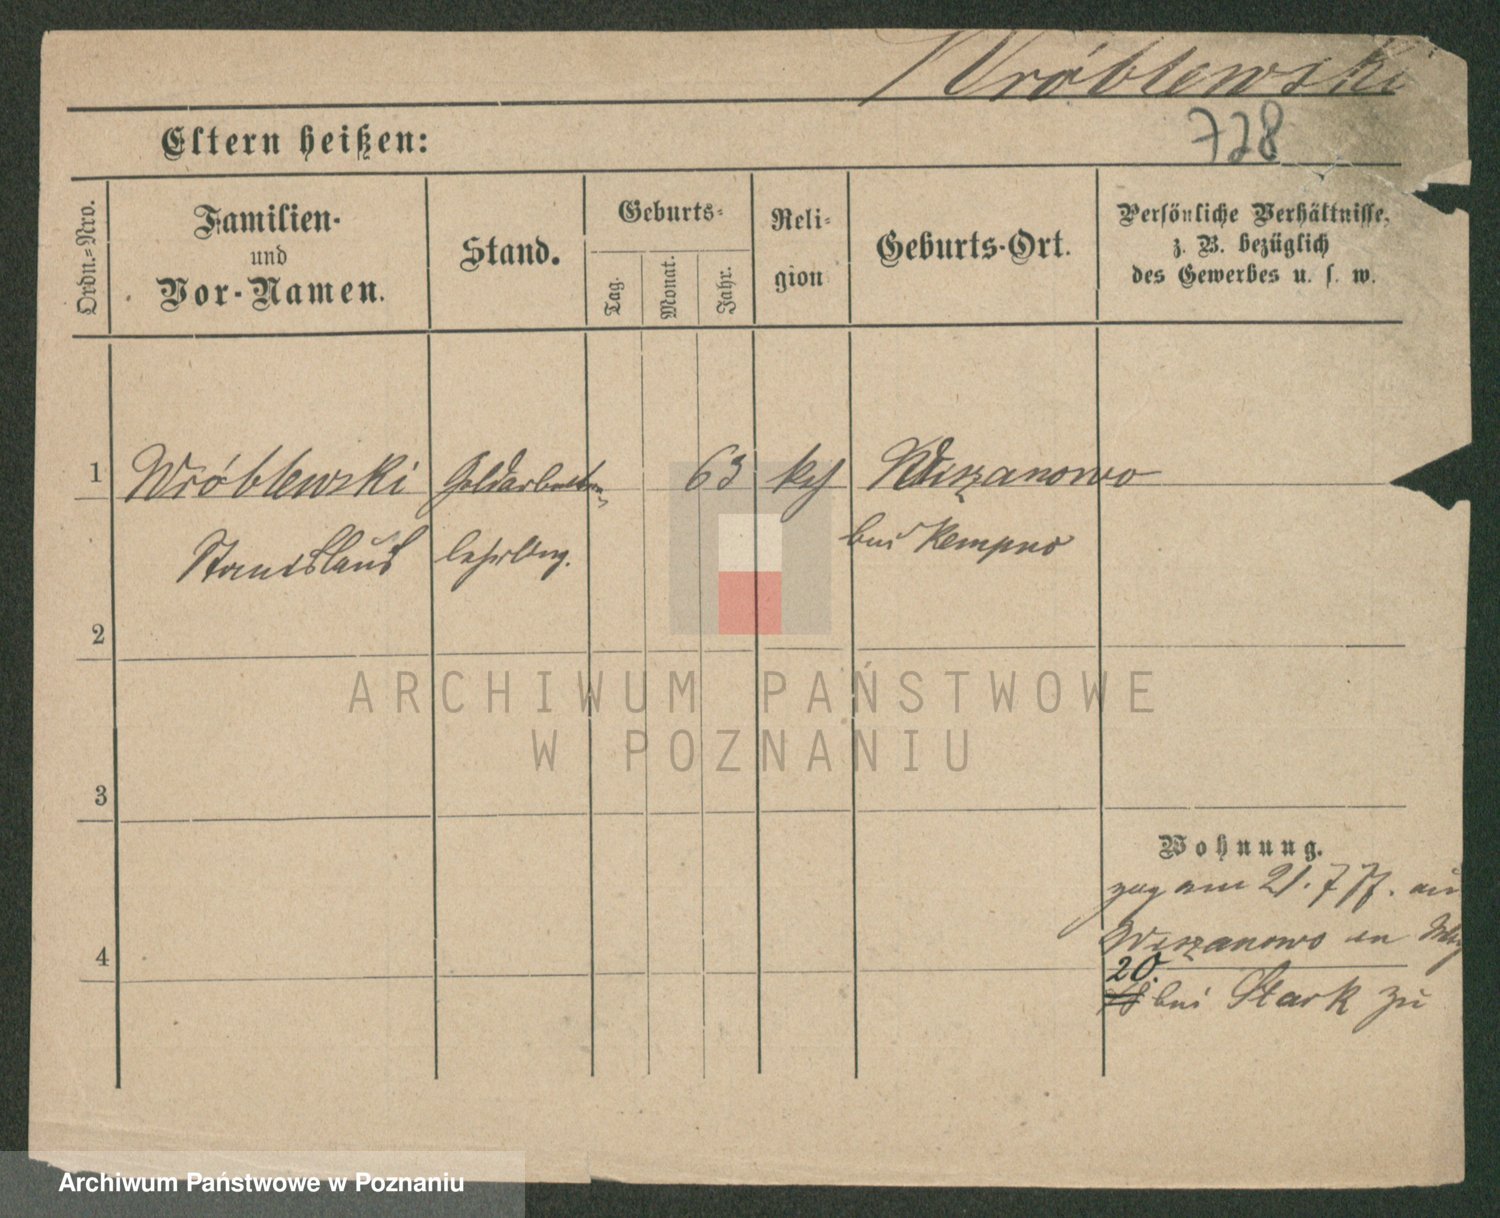 Wróblewski
728
Eltern heißen:
Ordn.=Nro.
Familien-
und
Vor-Namen.
Stand.
Geburts=
Tag.
Monat.
Jahr.
Reli=
gion
Geburts-Ort.
Persönliche Verhältnisse,
z. B. bezüglich
des Gewerbes u. s. w.
1
Wróblewski
Goldarbeiter
63
Wiszanowo
Stanislaus
lehrling.
bei Kempno
2
ARCHIWUM PAŃSTWOWE
W POZNANIU
3
Wohnung.
zog am 21. 7 77. aus
Wiszanowo
4
20.
bei Stark zu
Archiwum Państwowe w Poznaniu